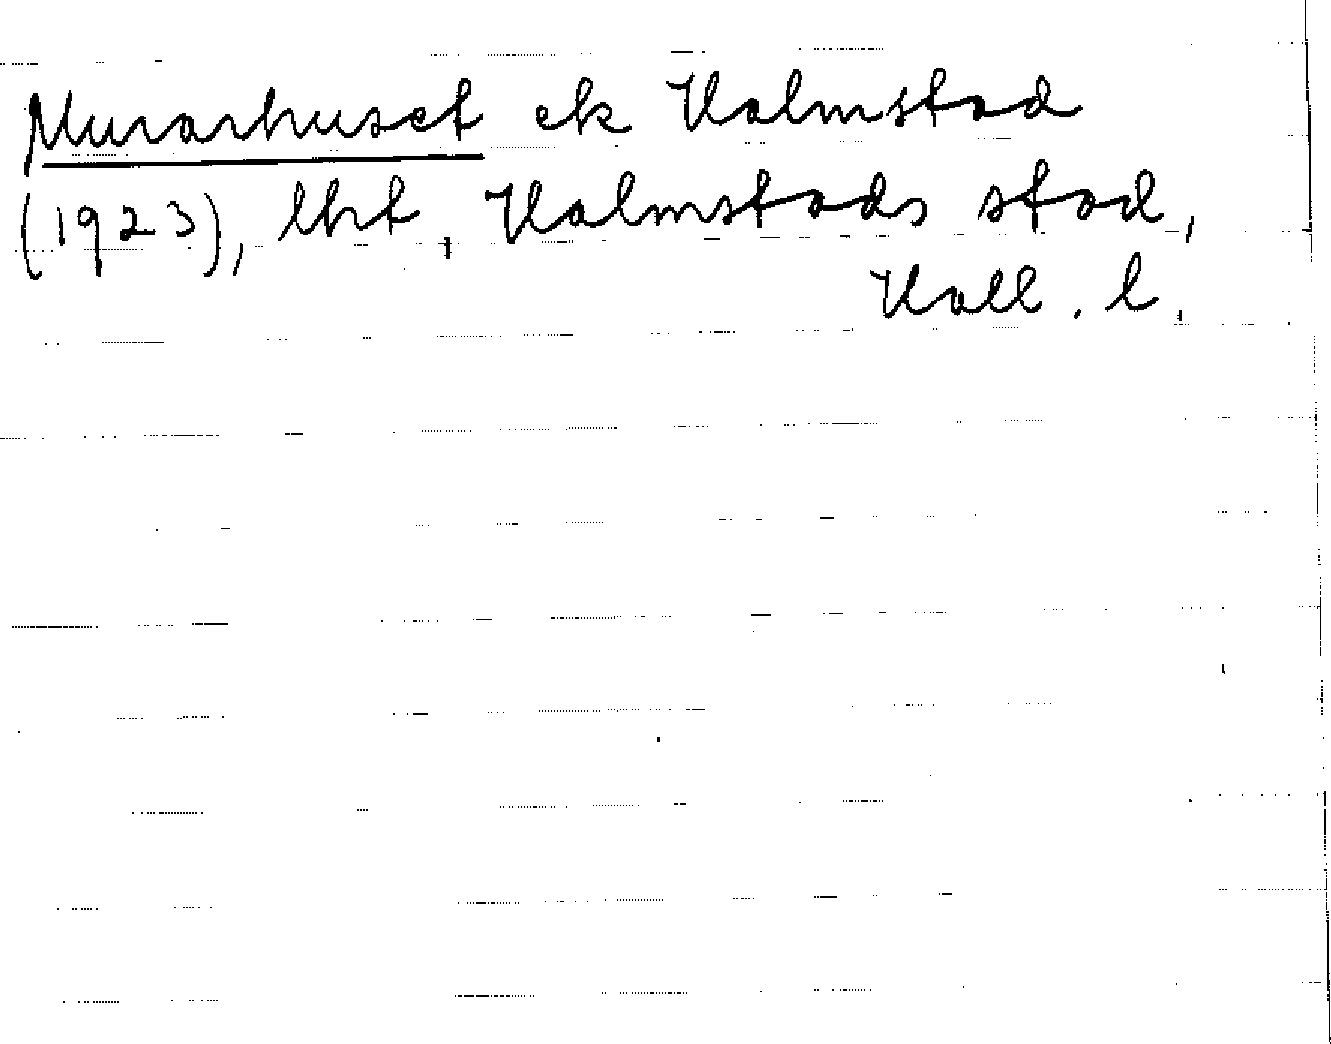 Murarhuset ek Halmstad
(1923), lht, Halmstads stad,
Hall. l.